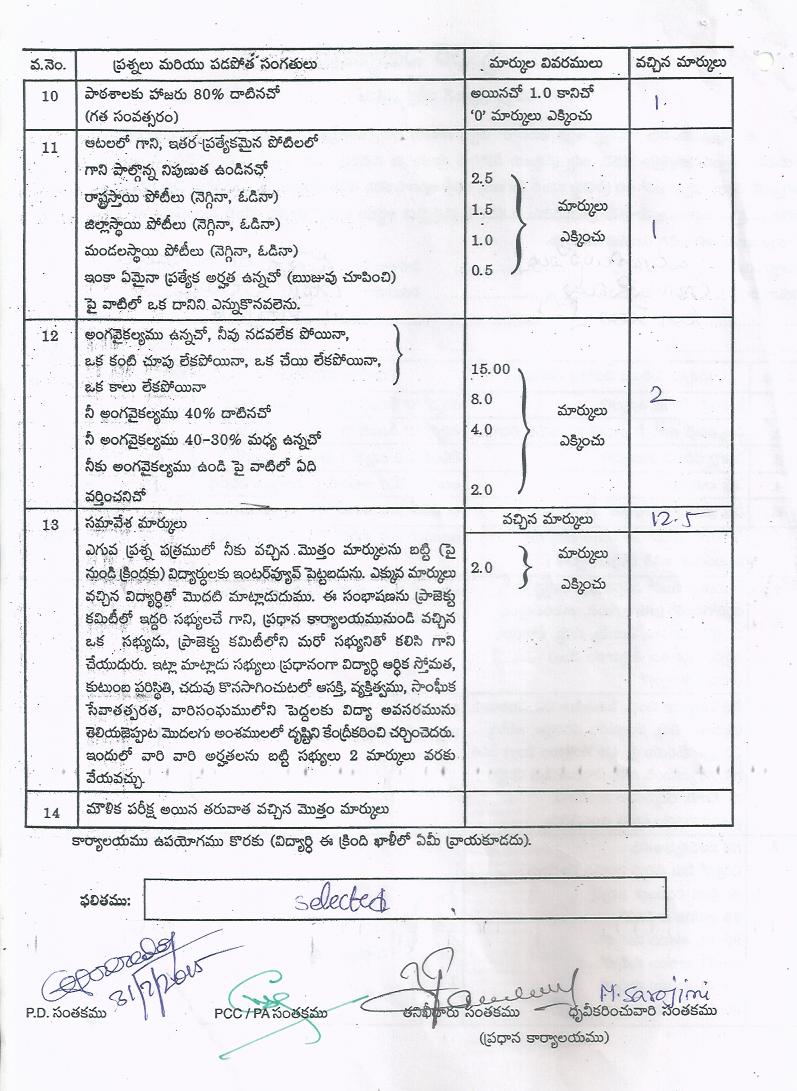 వ.నెం. ప్రశ్నలు మరియు పడపోత సంగతులు మార్కుల వివరములు వచ్చిన మార్కులు
10 పాఠశాలకు హాజరు 80% దాటినచో అయినచో 1.0 కానిచో 1.
(గత సంవత్సరం) '0' మార్కులు ఎక్కించు
11 ఆటలలో గాని, ఇతర ప్రత్యేకమైన పోటిలలో
గాని పాల్గొన్న నిపుణుత ఉండినచో
రాష్ట్రస్తాయి పోటీలు (నెగ్గినా, ఓడినా) 2.5
జిల్లాస్థాయి పోటీలు (నెగ్గినా, ఓడినా) 1.5 మార్కులు
మండలస్థాయి పోటీలు (నెగ్గినా, ఓడినా) 1.0 ఎక్కించు 1
ఇంకా ఏమైనా ప్రత్యేక అర్హత ఉన్నచో (ఋజువు చూపించి) 0.5
పై వాటిలో ఒక దానిని ఎన్నుకొనవలెను.
12 అంగవైకల్యము ఉన్నచో, నీవు నడవలేక పోయినా,
ఒక కంటి చూపు లేకపోయినా, ఒక చేయి లేకపోయినా, 15.00
ఒక కాలు లేకపోయినా
నీ అంగవైకల్యము 40% దాటినచో 8.0 మార్కులు 2
నీ అంగవైకల్యము 40-30% మధ్య ఉన్నచో 4.0 ఎక్కించు
నీకు అంగవైకల్యము ఉండి పై వాటిలో ఏది
వర్తించనిచో 2.0
13 సమావేశ మార్కులు వచ్చిన మార్కులు 12.5
ఎగువ ప్రశ్న పత్రములో నీకు వచ్చిన మొత్తం మార్కులను బట్టి (పై మార్కులు
నుండి క్రిందకు) విద్యార్థులకు ఇంటర్‌వ్యూవ్ పెట్టబడును. ఎక్కువ మార్కులు 2.0 ఎక్కించు
వచ్చిన విద్యార్థితో మొదటి మాట్లాడుదుము. ఈ సంభాషణను ప్రాజెక్టు
కమిటీలో ఇద్దరి సభ్యులచే గాని, ప్రధాన కార్యాలయమునుండి వచ్చిన
ఒక సభ్యుడు, ప్రాజెక్టు కమిటీలోని మరో సభ్యునితో కలిసి గాని
చేయుదురు. ఇట్లా మాట్లాడు సభ్యులు ప్రధానంగా విద్యార్థి ఆర్ధిక స్తోమత,
కుటుంబ పరిస్థితి, చదువు కొనసాగించుటలో ఆసక్తి, వ్యక్తిత్వము, సాంఘీక
సేవాతత్పరత, వారిసంఘములోని పెద్దలకు విద్యా అవసరమును
తెలియజెప్పుట మొదలగు అంశములలో దృష్టిని కేంద్రీకరించి చర్చించెదరు.
ఇందులో వారి వారి అర్హతలను బట్టి సభ్యులు 2 మార్కులు వరకు
వేయవచ్చు.
14 మౌళిక పరీక్ష అయిన తరువాత వచ్చిన మొత్తం మార్కులు
కార్యాలయము ఉపయోగము కొరకు (విద్యార్థి ఈ క్రింది ఖాళీలో ఏమీ వ్రాయకూడదు).
ఫలితము: selected
31/7/2015 M. Sarojini
P.D. సంతకము PCC / PA సంతకము తనిఖీదారు సంతకము ధృవీకరించువారి సంతకము
(ప్రధాన కార్యాలయము)